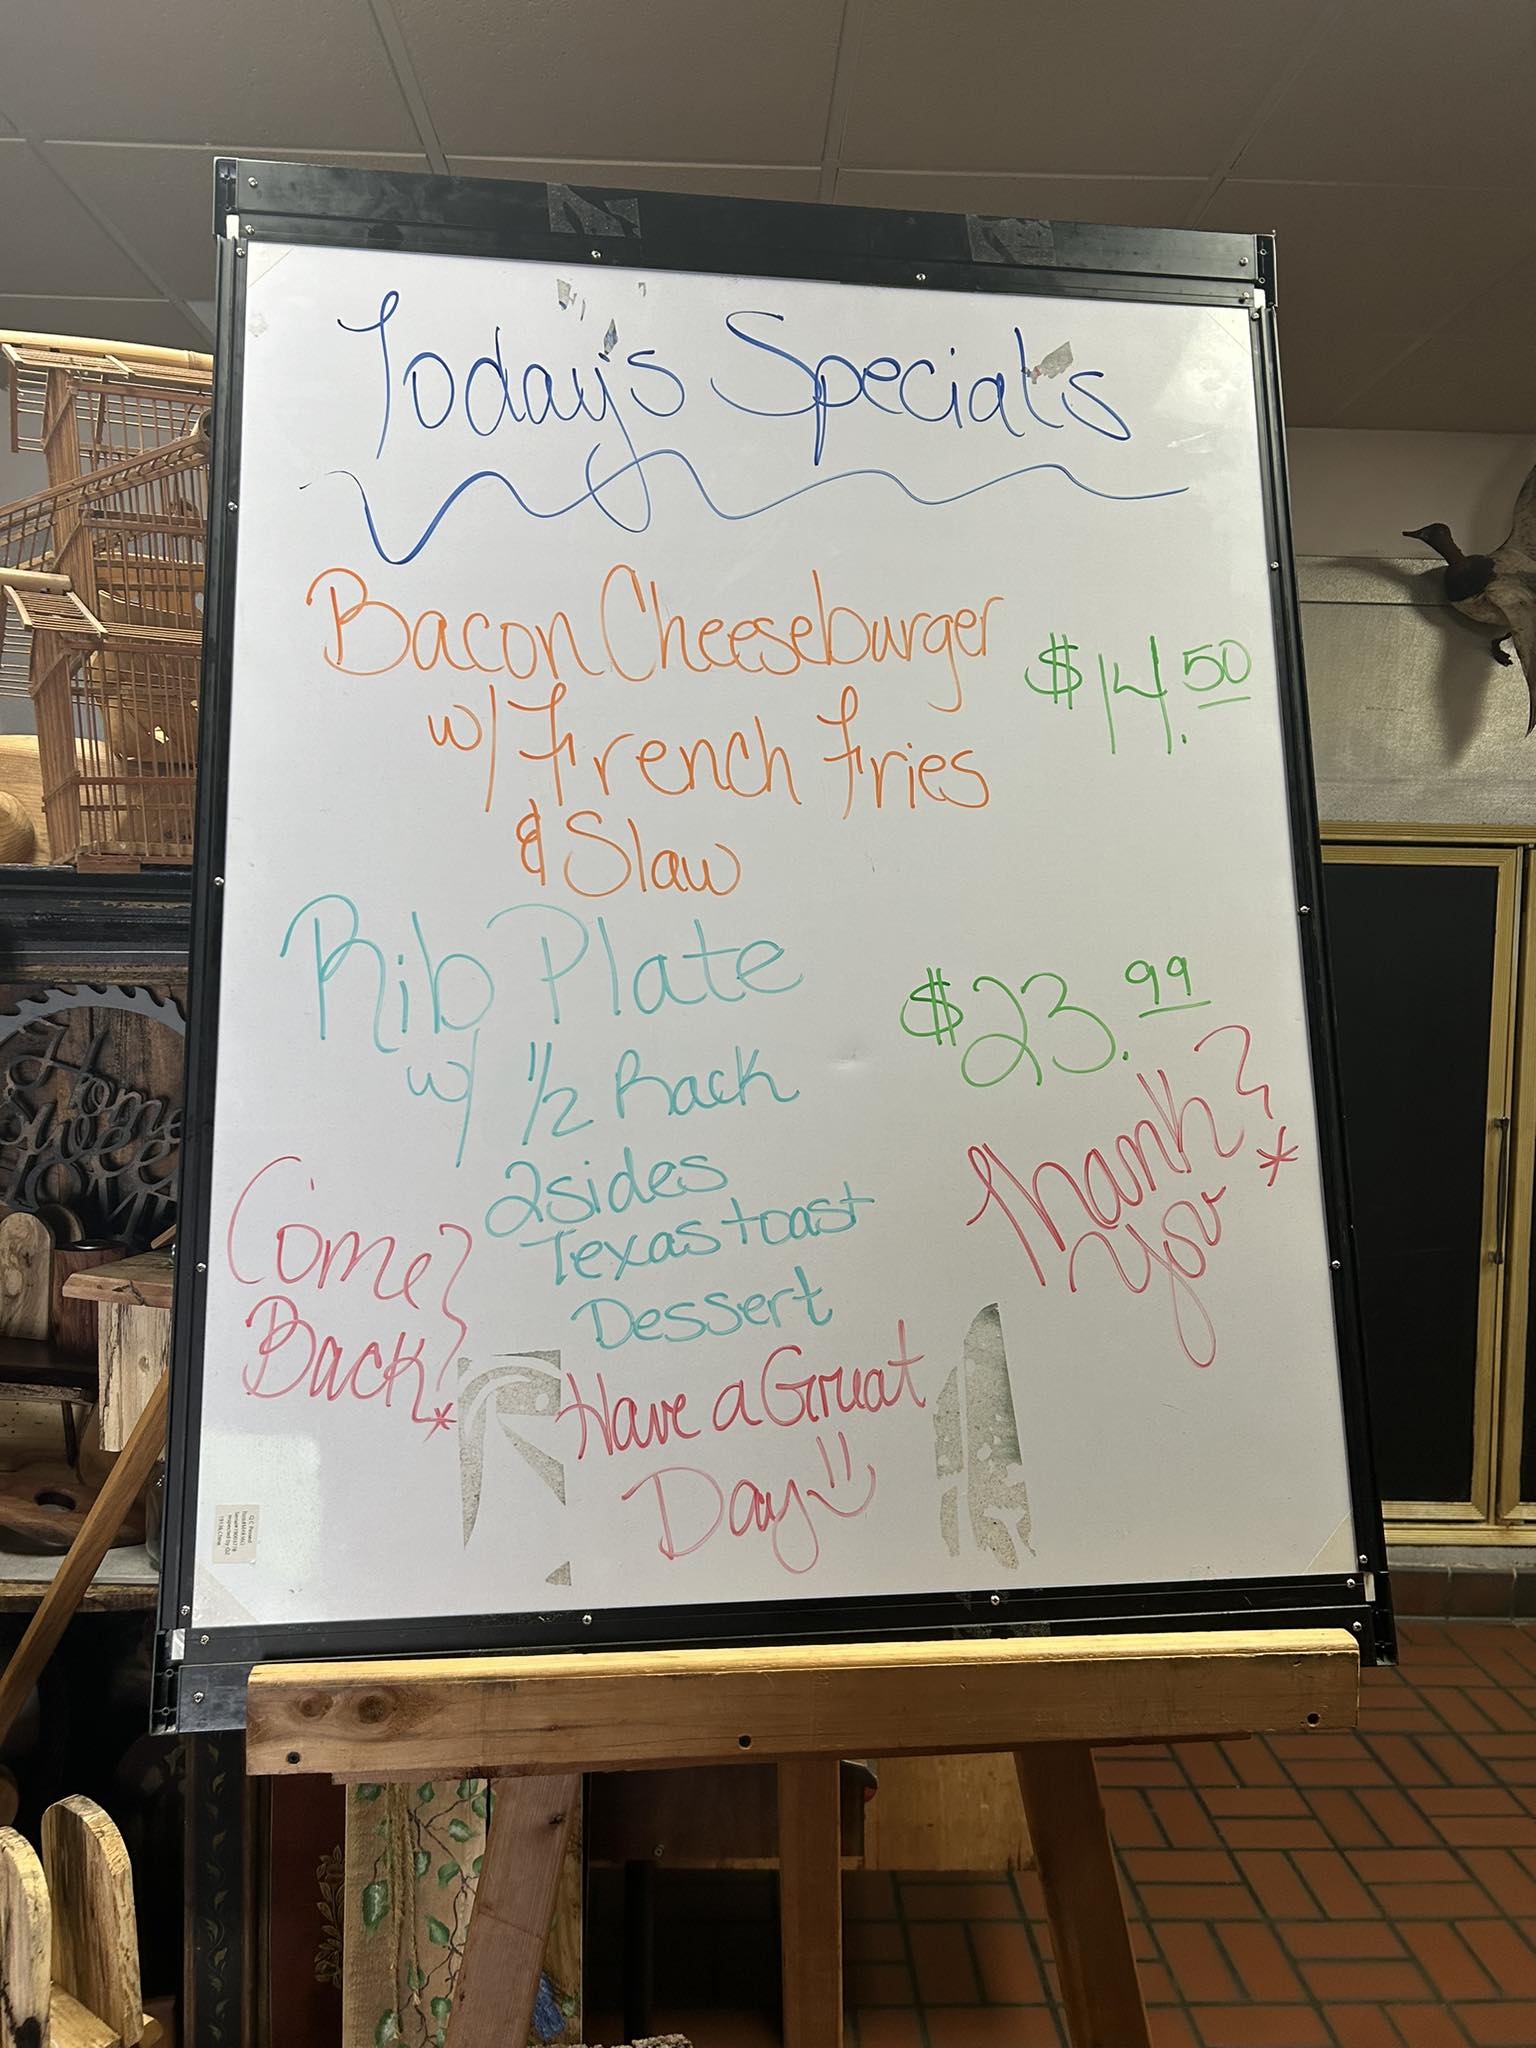 Today's Special's
Bacon Cheeseburger
w/ French Fries
& Slaw
$14.50
Rib Plate
w/ 1/2 Rack
2sides
Texas toast
Dessert
$23.99
Thank
You
Come
Back
Have a Great
Day
Home
Sweet
Home